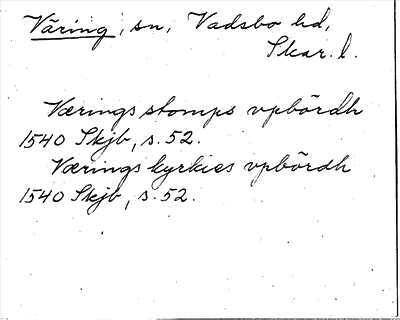 Väring, sn, Vadsbo hd,
Skar. l.
Værings stomps vpbördh
1540 Skjb, s. 52.
Værings kyrkies vpbördh
1540 Skjb, s. 52.